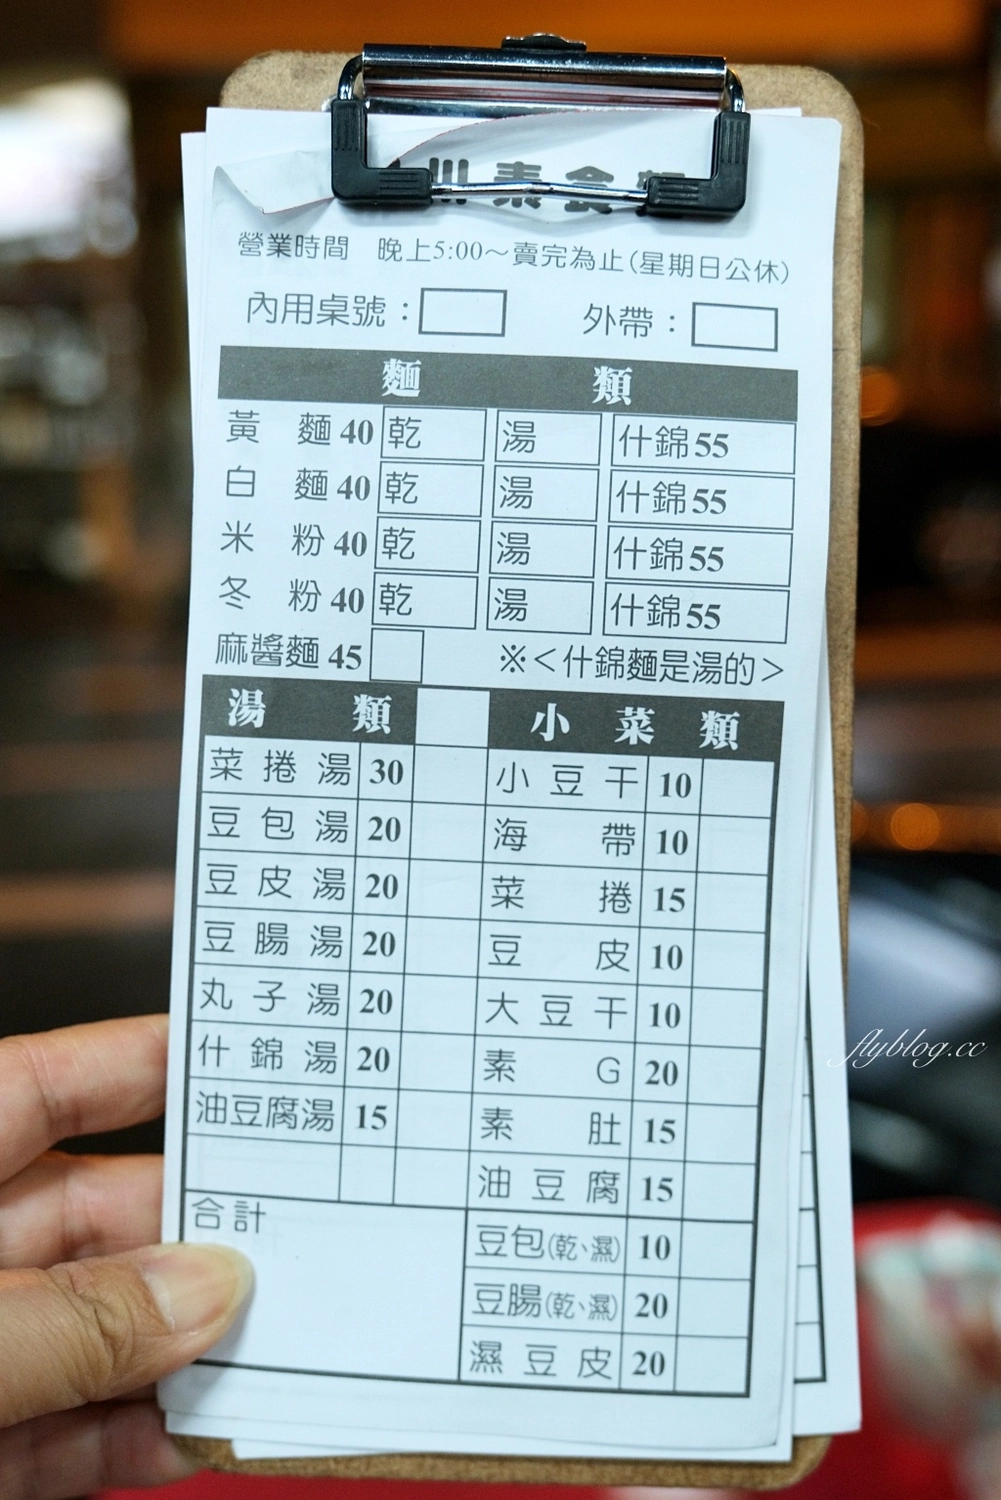 川素食
營業時間 晚上5:00～賣完為止(星期日公休)
內用桌號： 外帶：
麵類
黃麵40 乾 湯 什錦55
白麵40 乾 湯 什錦55
米粉40 乾 湯 什錦55
冬粉40 乾 湯 什錦55
麻醬麵45 ※＜什錦麵是湯的＞
湯類 小菜類
菜捲湯 30 小豆干 10
豆包湯 20 海帶 10
豆皮湯 20 菜捲 15
豆腸湯 20 豆皮 10
丸子湯 20 大豆干 10
什錦湯 20 素G 20
油豆腐湯 15 素肚 15
油豆腐 15
合計 豆包(乾、濕) 10
豆腸(乾、濕) 20
濕豆皮 20
flyblog.cc